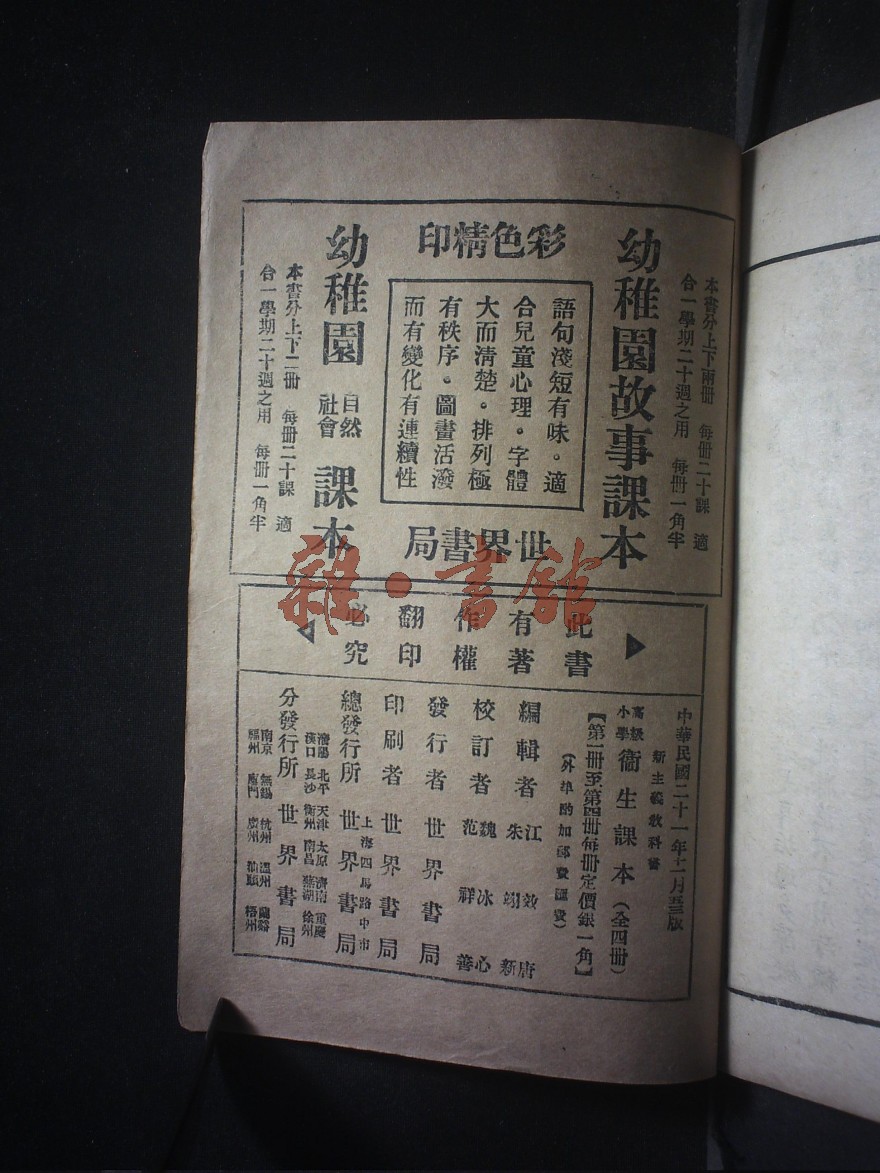 幼稚園故事課本
本書分上下兩册 每册二十課 適
合一學期二十週之用 每册一角半
彩色精印
語句淺短有味。適
合兒童心理。字體
大而清楚。排列極
有秩序。圖畫活潑
而有變化有連續性
世界書局
幼稚園 自然社會 課本
本書分上下二册 每册二十課 適
合一學期二十週之用 每册一角半
雜·書館
此書
有著
作權
翻印
必究
中華民國二十一年十一月
新主義教科書
高級小學 衞生課本(全四册)
【第一册至第四册每册定價銀一角】
(外埠酌加郵費匯費)
編輯者 江效唐 朱翊新
校訂者 魏冰心 范祥善
發行者 世界書局
印刷者 世界書局
上海四馬路中市
總發行所 世界書局
瀋陽 北平 天津 太原 濟南 重慶
漢口 長沙 衢州 南昌 蕪湖 徐州
分發行所 世界書局
南京 無錫 杭州 溫州 蘭谿
福州 廈門 廣州 汕頭 梧州